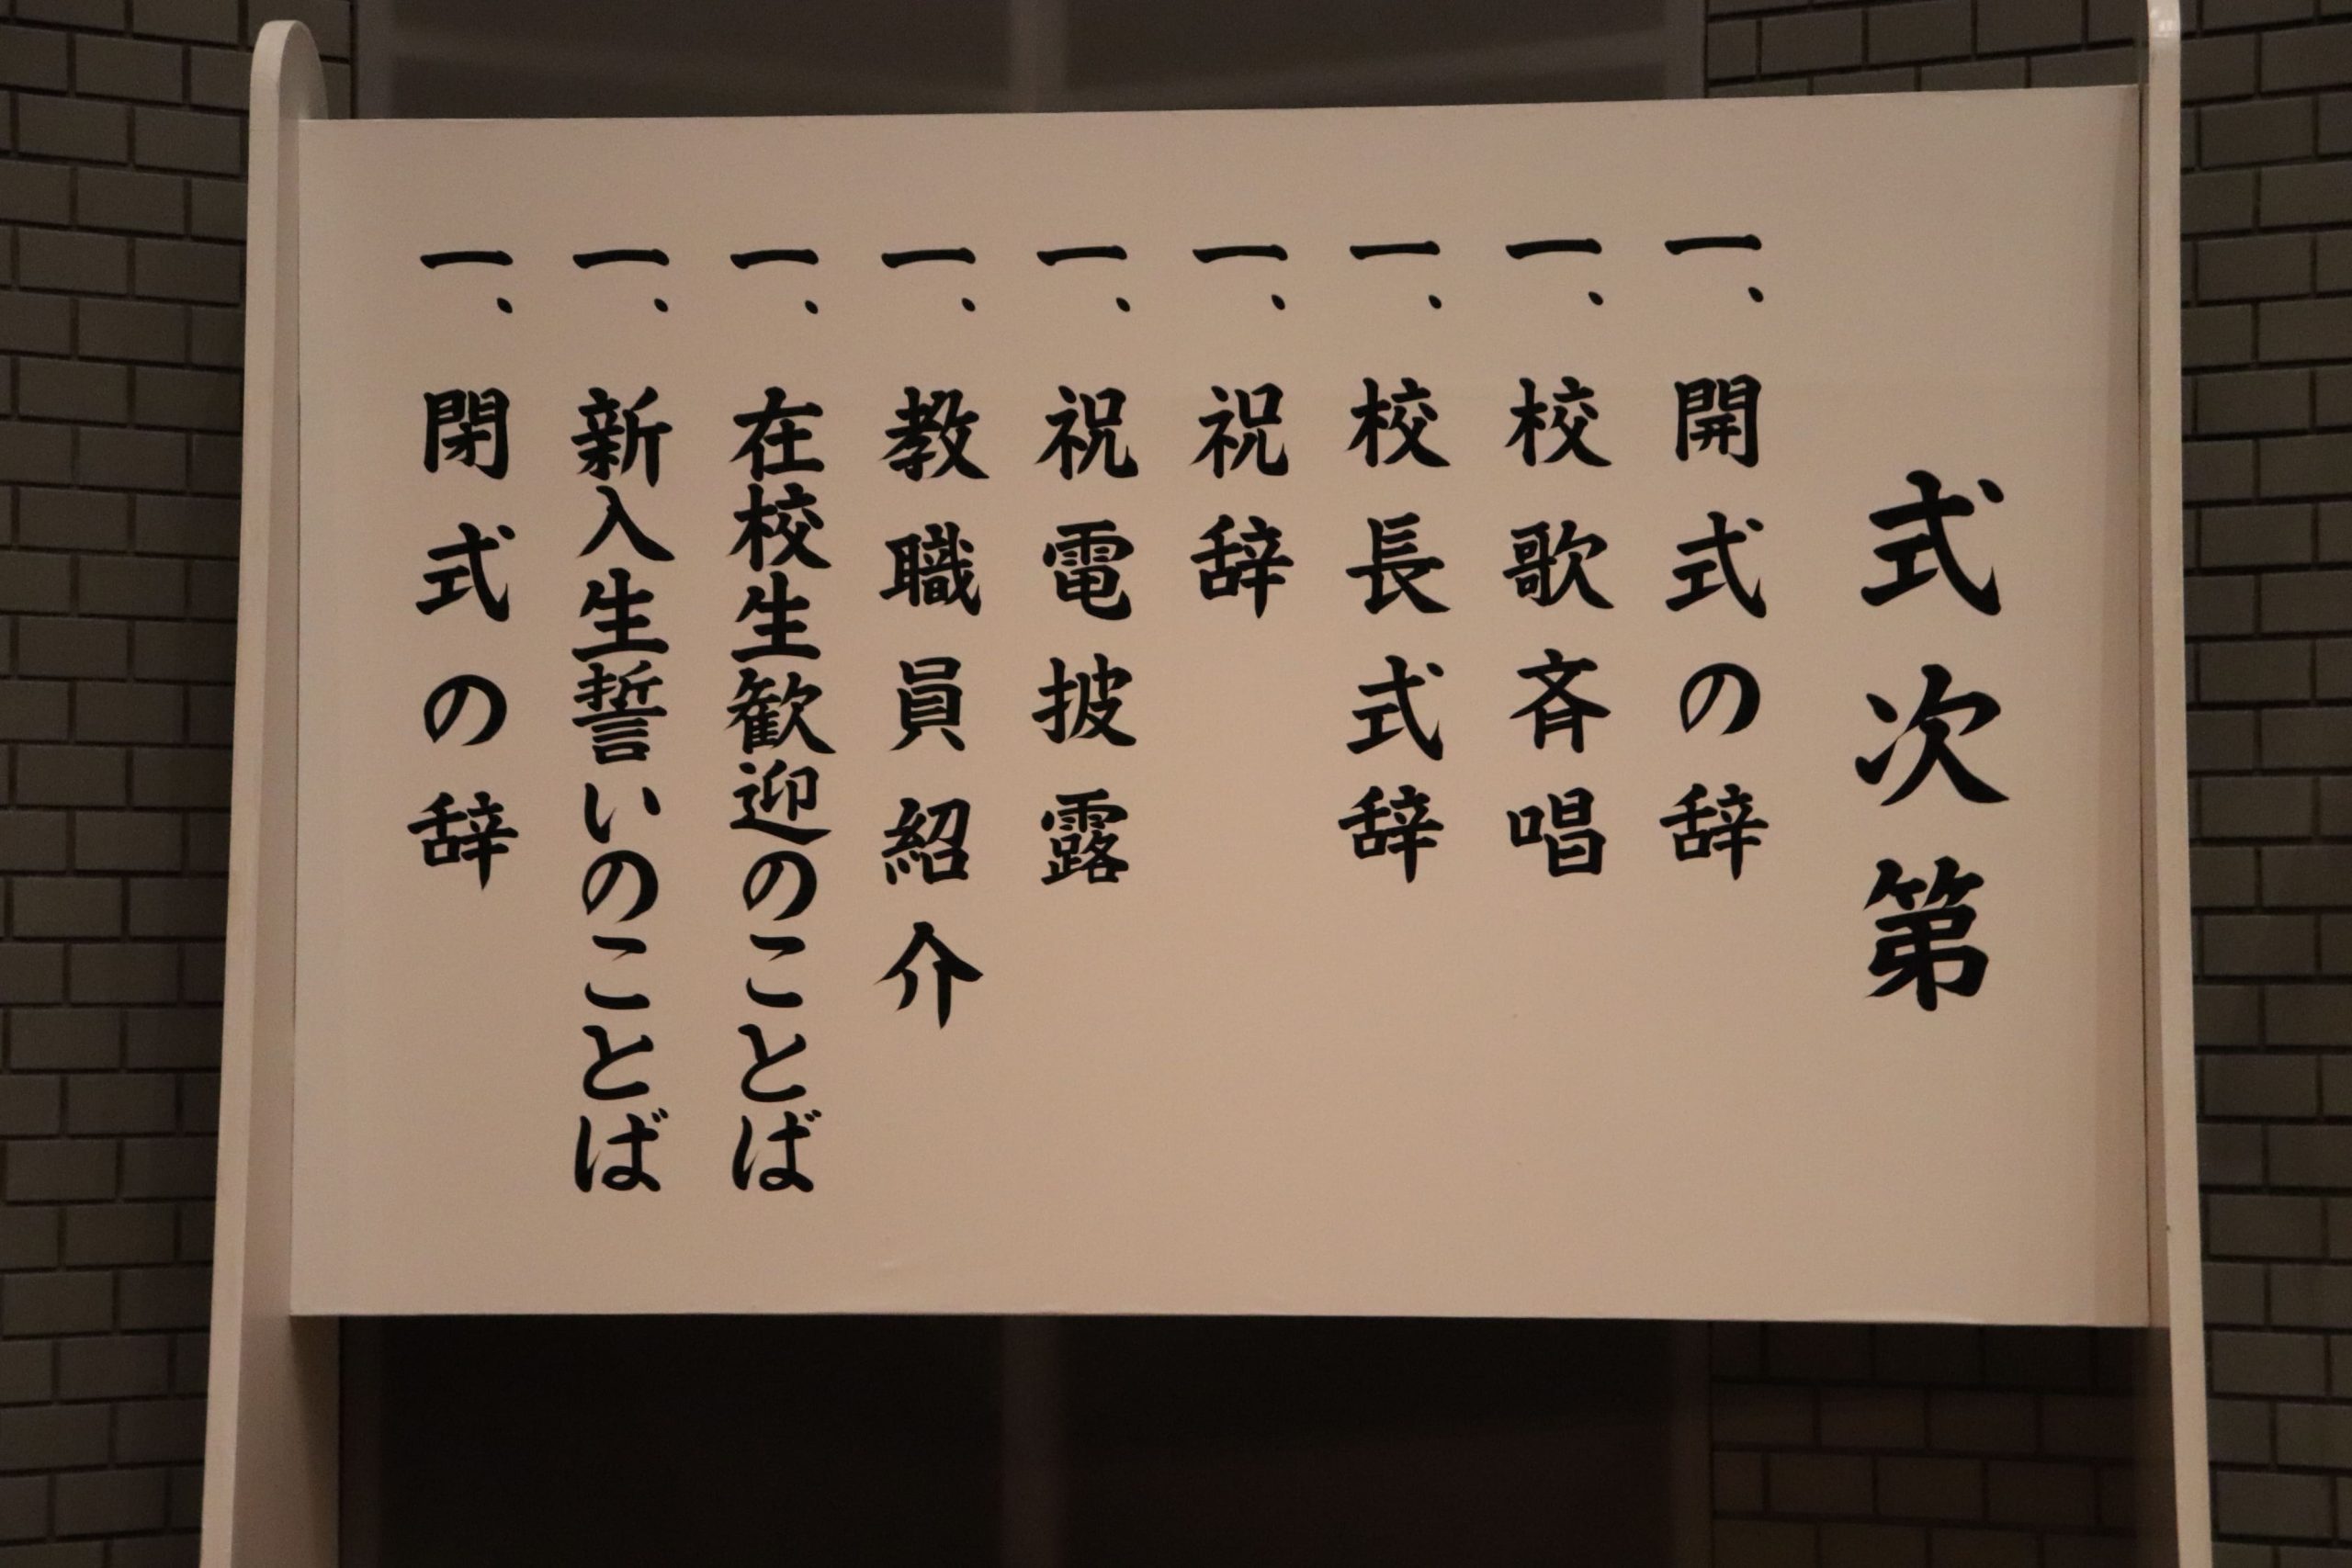 式次第
一、開式の辞
一、校歌斉唱
一、校長式辞
一、祝辞
一、祝電披露
一、教職員紹介
一、在校生歓迎のことば
一、新入生誓いのことば
一、閉式の辞